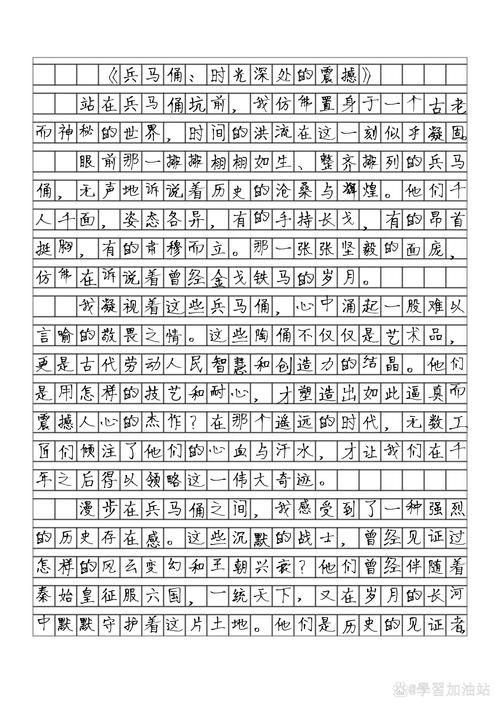 《兵马俑：时光深处的震撼》
站在兵马俑坑前，我仿佛置身于一个古老
而神秘的世界，时间的洪流在这一刻似乎凝固
眼前那一排排栩栩如生、整齐排列的兵马
俑，无声地诉说着历史的沧桑与辉煌。他们千
人千面，姿态各异，有的手持长戈，有的昂首
挺胸，有的肃穆而立。那一张张坚毅的面庞，
仿佛在诉说着曾经金戈铁马的岁月。
我凝视着这些兵马俑，心中涌起一股难以
言喻的敬畏之情。这些陶俑不仅仅是艺术品，
更是古代劳动人民智慧和创造力的结晶。他们
是用怎样的技艺和耐心，才塑造出如此逼真而
震撼人心的杰作？在那个遥远的时代，无数工
匠们倾注了他们的心血与汗水，才让我们在千
年之后得以领略这一伟大奇迹。
漫步在兵马俑之间，我感受到了一种强烈
的历史存在感。这些沉默的战士，曾经见证过
怎样的风云变幻和王朝兴衰？他们曾经伴随着
秦始皇征服六国，一统天下，又在岁月的长河
中默默守护着这片土地。他们是历史的见证者
@學習加油站